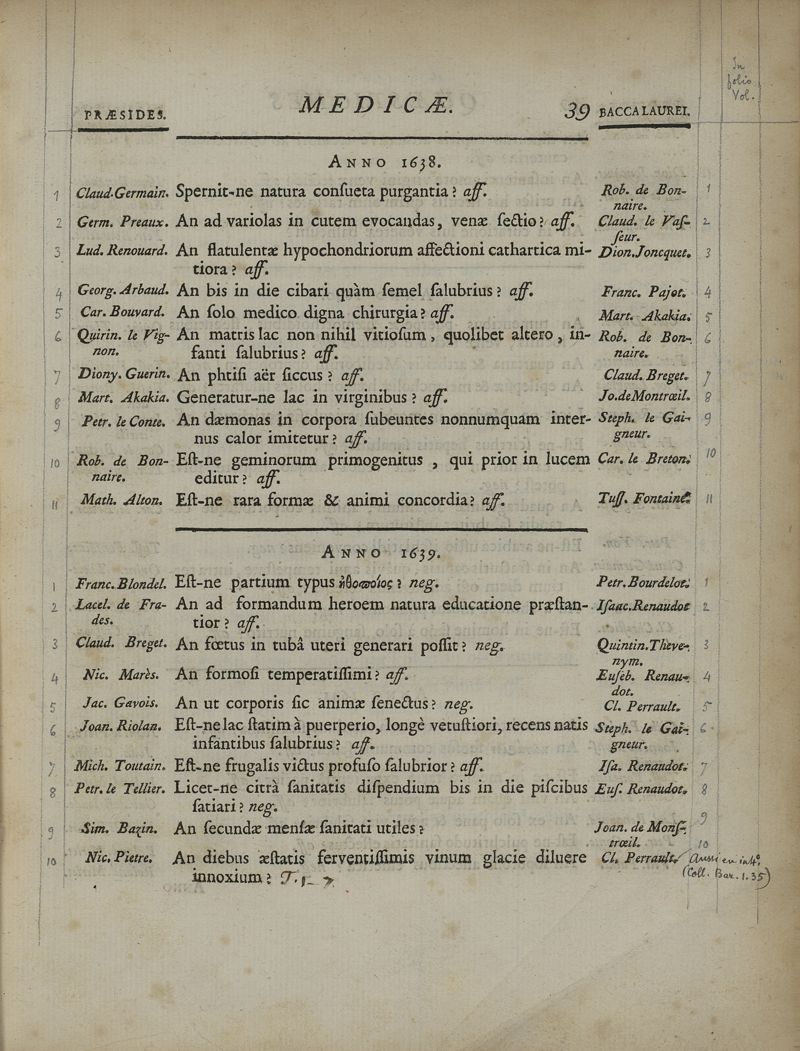 In
folio
Vol.
PRÆSIDES. MEDICÆ. 39 BACCALAUREI.
ANNO 1638.
1 Claud. Germain. Spernit-ne natura conſueta purgantia? aff. Rob. de Bon- 1
naire.
2 Germ. Preaux. An ad variolas in cutem evocandas, venæ ſectio? aff. Claud. le Vaſ- 2
ſeur.
3 Lud. Renouard. An flatulentæ hypochondriorum affectioni cathartica mi- Dion. Joncquet. 3
tiora? aff.
4 Georg. Arbaud. An bis in die cibari quàm ſemel ſalubrius? aff. Franc. Pajot. 4
5 Car. Bouvard. An ſolo medico digna chirurgia? aff. Mart. Akakia. 5
6 Quirin. le Vig- An matris lac non nihil vitioſum, quolibet altero, in- Rob. de Bon- 6
non. fanti ſalubrius? aff. naire.
7 Diony. Guerin. An phtiſi aër ſiccus? aff. Claud. Breget. 7
8 Mart. Akakia. Generatur-ne lac in virginibus? aff. Jo. de Montrœil. 8
9 Petr. le Conte. An dæmonas in corpora ſubeuntes nonnumquam inter- Steph. le Gai- 9
nus calor imitetur? aff. gneur.
10 Rob. de Bon- Eſt-ne geminorum primogenitus, qui prior in lucem Car. le Breton. 10
naire. editur? aff.
11 Math. Alton. Eſt-ne rara formæ & animi concordia? aff. Tuſſ. Fontaine. 11
ANNO 1639.
1 Franc. Blondel. Eſt-ne partium typus ἠθοποιός? neg. Petr. Bourdelot. 1
2 Lacel. de Fra- An ad formandum heroem natura educatione præſtan- Iſaac. Renaudot 2
des. tior? aff.
3 Claud. Breget. An fœtus in tubâ uteri generari poſſit? neg. Quintin. Theve- 3
nym.
4 Nic. Marès. An formoſi temperatiſſimi? aff. Euſeb. Renau- 4
dot.
5 Jac. Gavois. An ut corporis ſic animæ ſenectus? neg. Cl. Perrault. 5
6 Joan. Riolan. Eſt-ne lac ſtatim à puerperio, longè vetuſtiori, recens natis Steph. le Gai- 6
infantibus ſalubrius? aff. gneur.
7 Mich. Toutain. Eſt-ne frugalis victus profuſo ſalubrior? aff. Iſa. Renaudot. 7
8 Petr. le Tellier. Licet-ne citrà ſanitatis diſpendium bis in die piſcibus Euſ. Renaudot. 8
ſatiari? neg.
9 Sim. Bazin. An ſecundæ menſæ ſanitati utiles? Joan. de Monſ- 9
trœil.
10 Nic. Pietre. An diebus æſtatis ferventiſſimis vinum glacie diluere Cl. Perrault. 10 Aussi en in 4º.
innoxium? (Coll. Bar. 1.35)